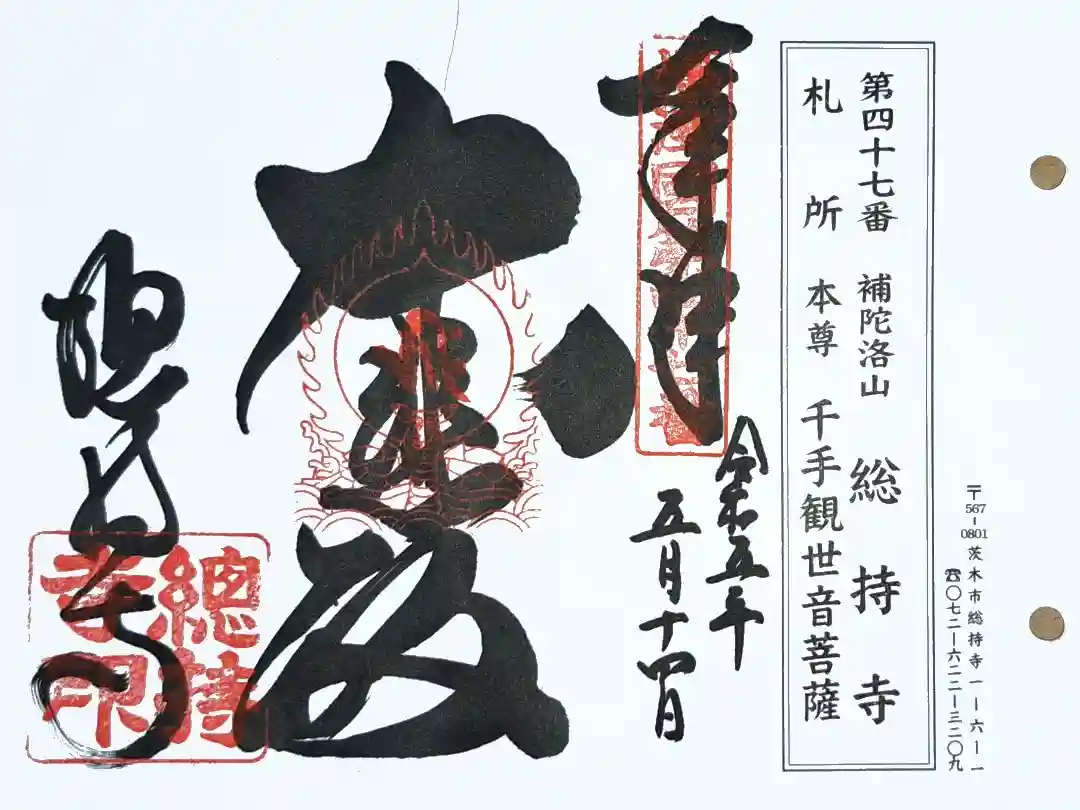 〒567-0801 茨木市総持寺一ー六ー一
☎〇七二ー六二二ー三二〇九
第四十七番 補陀洛山 総持寺
札所 本尊 千手観世音菩薩
奉拝
令和五年
五月十四日
大悲殿
總持寺
總持
寺印